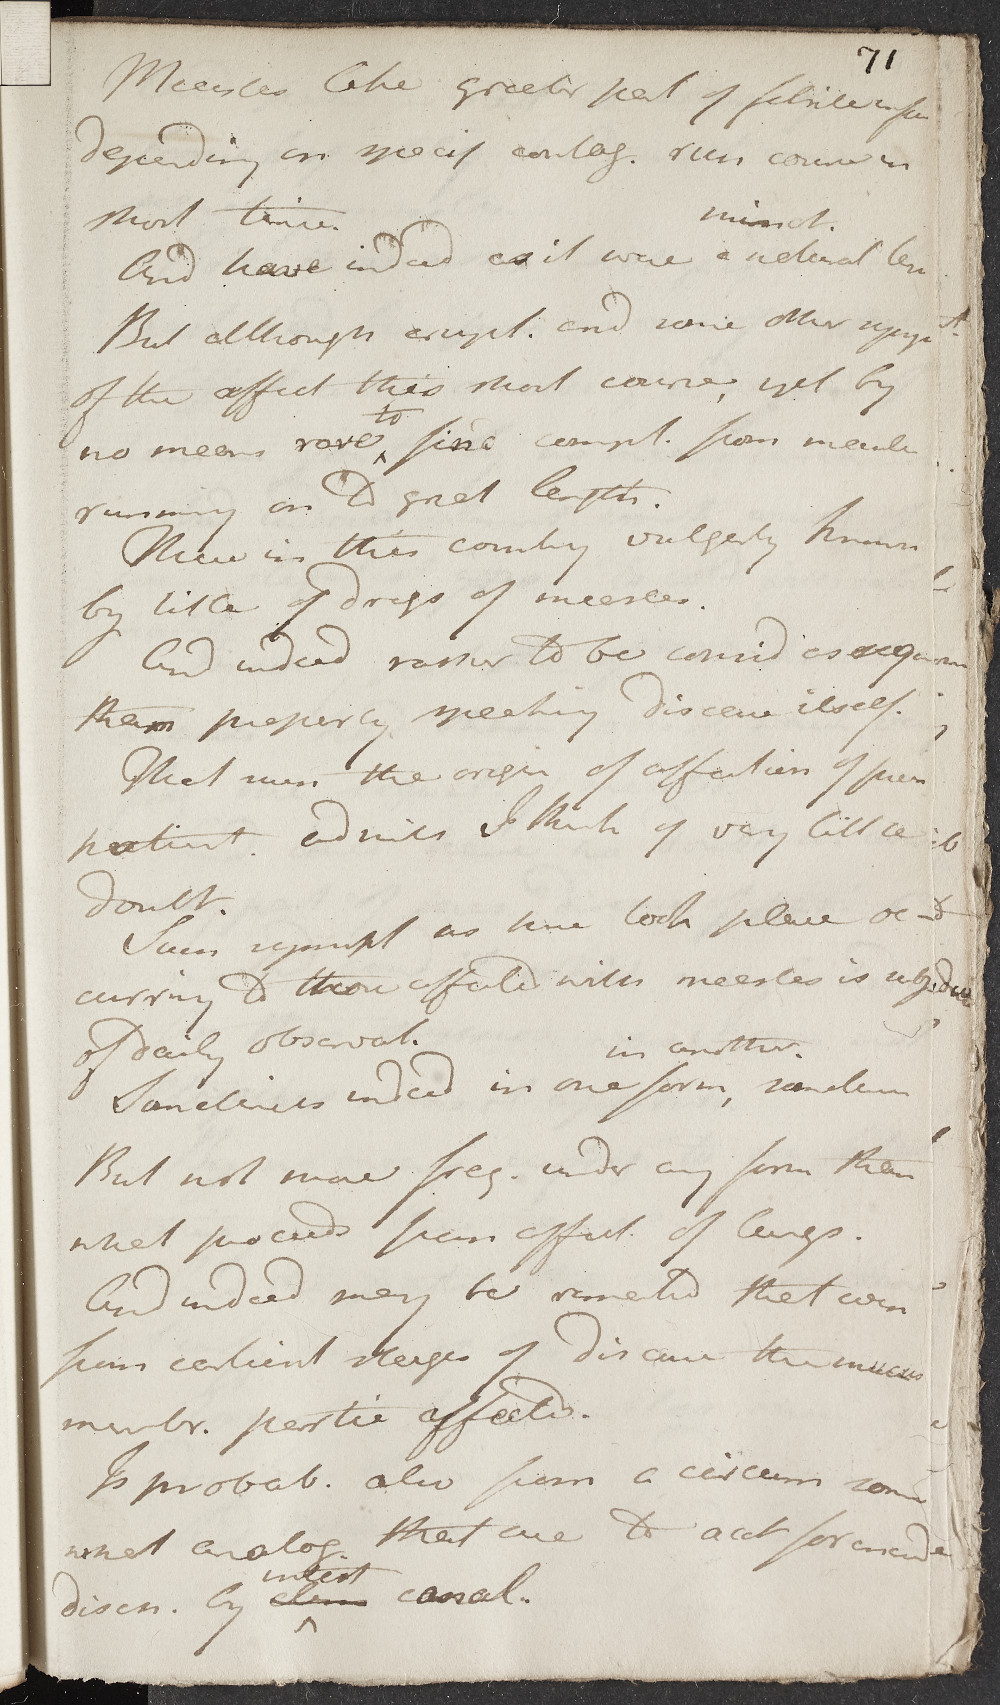 71
Measles like greater part of febrile
depending on specif contag. run course in
short time.
minat.
And have indeed as it were a natural
But although erupt. and some other sympt.
of the affect this short course, yet by
to
no means rare find compl. from measles
running on to great length.
These in this country vulgarly known
by title of dregs of measles.
And indeed rather to be consid as sequom
than properly speaking disease itself.
What was the origin of affection of pres
patient. admits I think of very little
doubt.
Such sympt as here took place oc-
curring to those affected with measles is subject
of daily observat.
in another.
Sometimes indeed in one form, sometim
But not more freq. under any form than
what proceeds from affect. of lungs.
And indeed may be remarked that even
from earliest stages of disease the mucus
membr. partic affected.
Is probab. also from a circum some
what analog. that are to acct for
intest
disch. by canal.